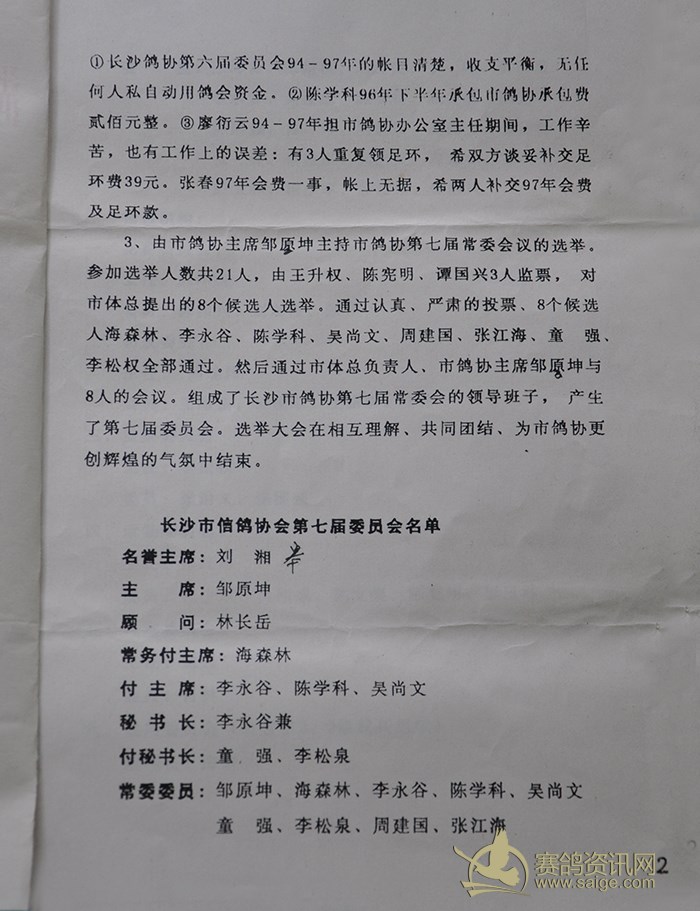 ①长沙鸽协第六届委员会94－97年的帐目清楚，收支平衡，无任
何人私自动用鸽会资金。②陈学科96年下半年承包市鸽协承包费
贰佰元整。③廖衍云94－97年担市鸽协办公室主任期间，工作辛
苦，也有工作上的误差：有3人重复领足环， 希双方谈妥补交足
环费39元。张春97年会费一事，帐上无据，希两人补交97年会费
及足环款。
3、由市鸽协主席邹原坤主持市鸽协第七届常委会议的选举。
参加选举人数共21人，由王升权、陈宪明、谭国兴3人监票， 对
市体总提出的8个候选人选举。通过认真、严肃的投票、8个候选
人海森林、李永谷、陈学科、吴尚文、周建国、张江海、童 强、
李松权全部通过。然后通过市体总负责人、市鸽协主席邹原坤与
8人的会议。组成了长沙市鸽协第七届常委会的领导班子， 产生
了第七届委员会。选举大会在相互理解、共同团结、为市鸽协更
创辉煌的气氛中结束。
长沙市信鸽协会第七届委员会名单
名誉主席：刘 湘
主 席：邹原坤
顾 问：林长岳
常务付主席：海森林
付 主 席：李永谷、陈学科、吴尚文
秘 书 长：李永谷兼
付秘书长：童 强、李松泉
常委委员：邹原坤、海森林、李永谷、陈学科、吴尚文
童 强、李松泉、周建国、张江海
赛鸽资讯网
www.saige.com
2